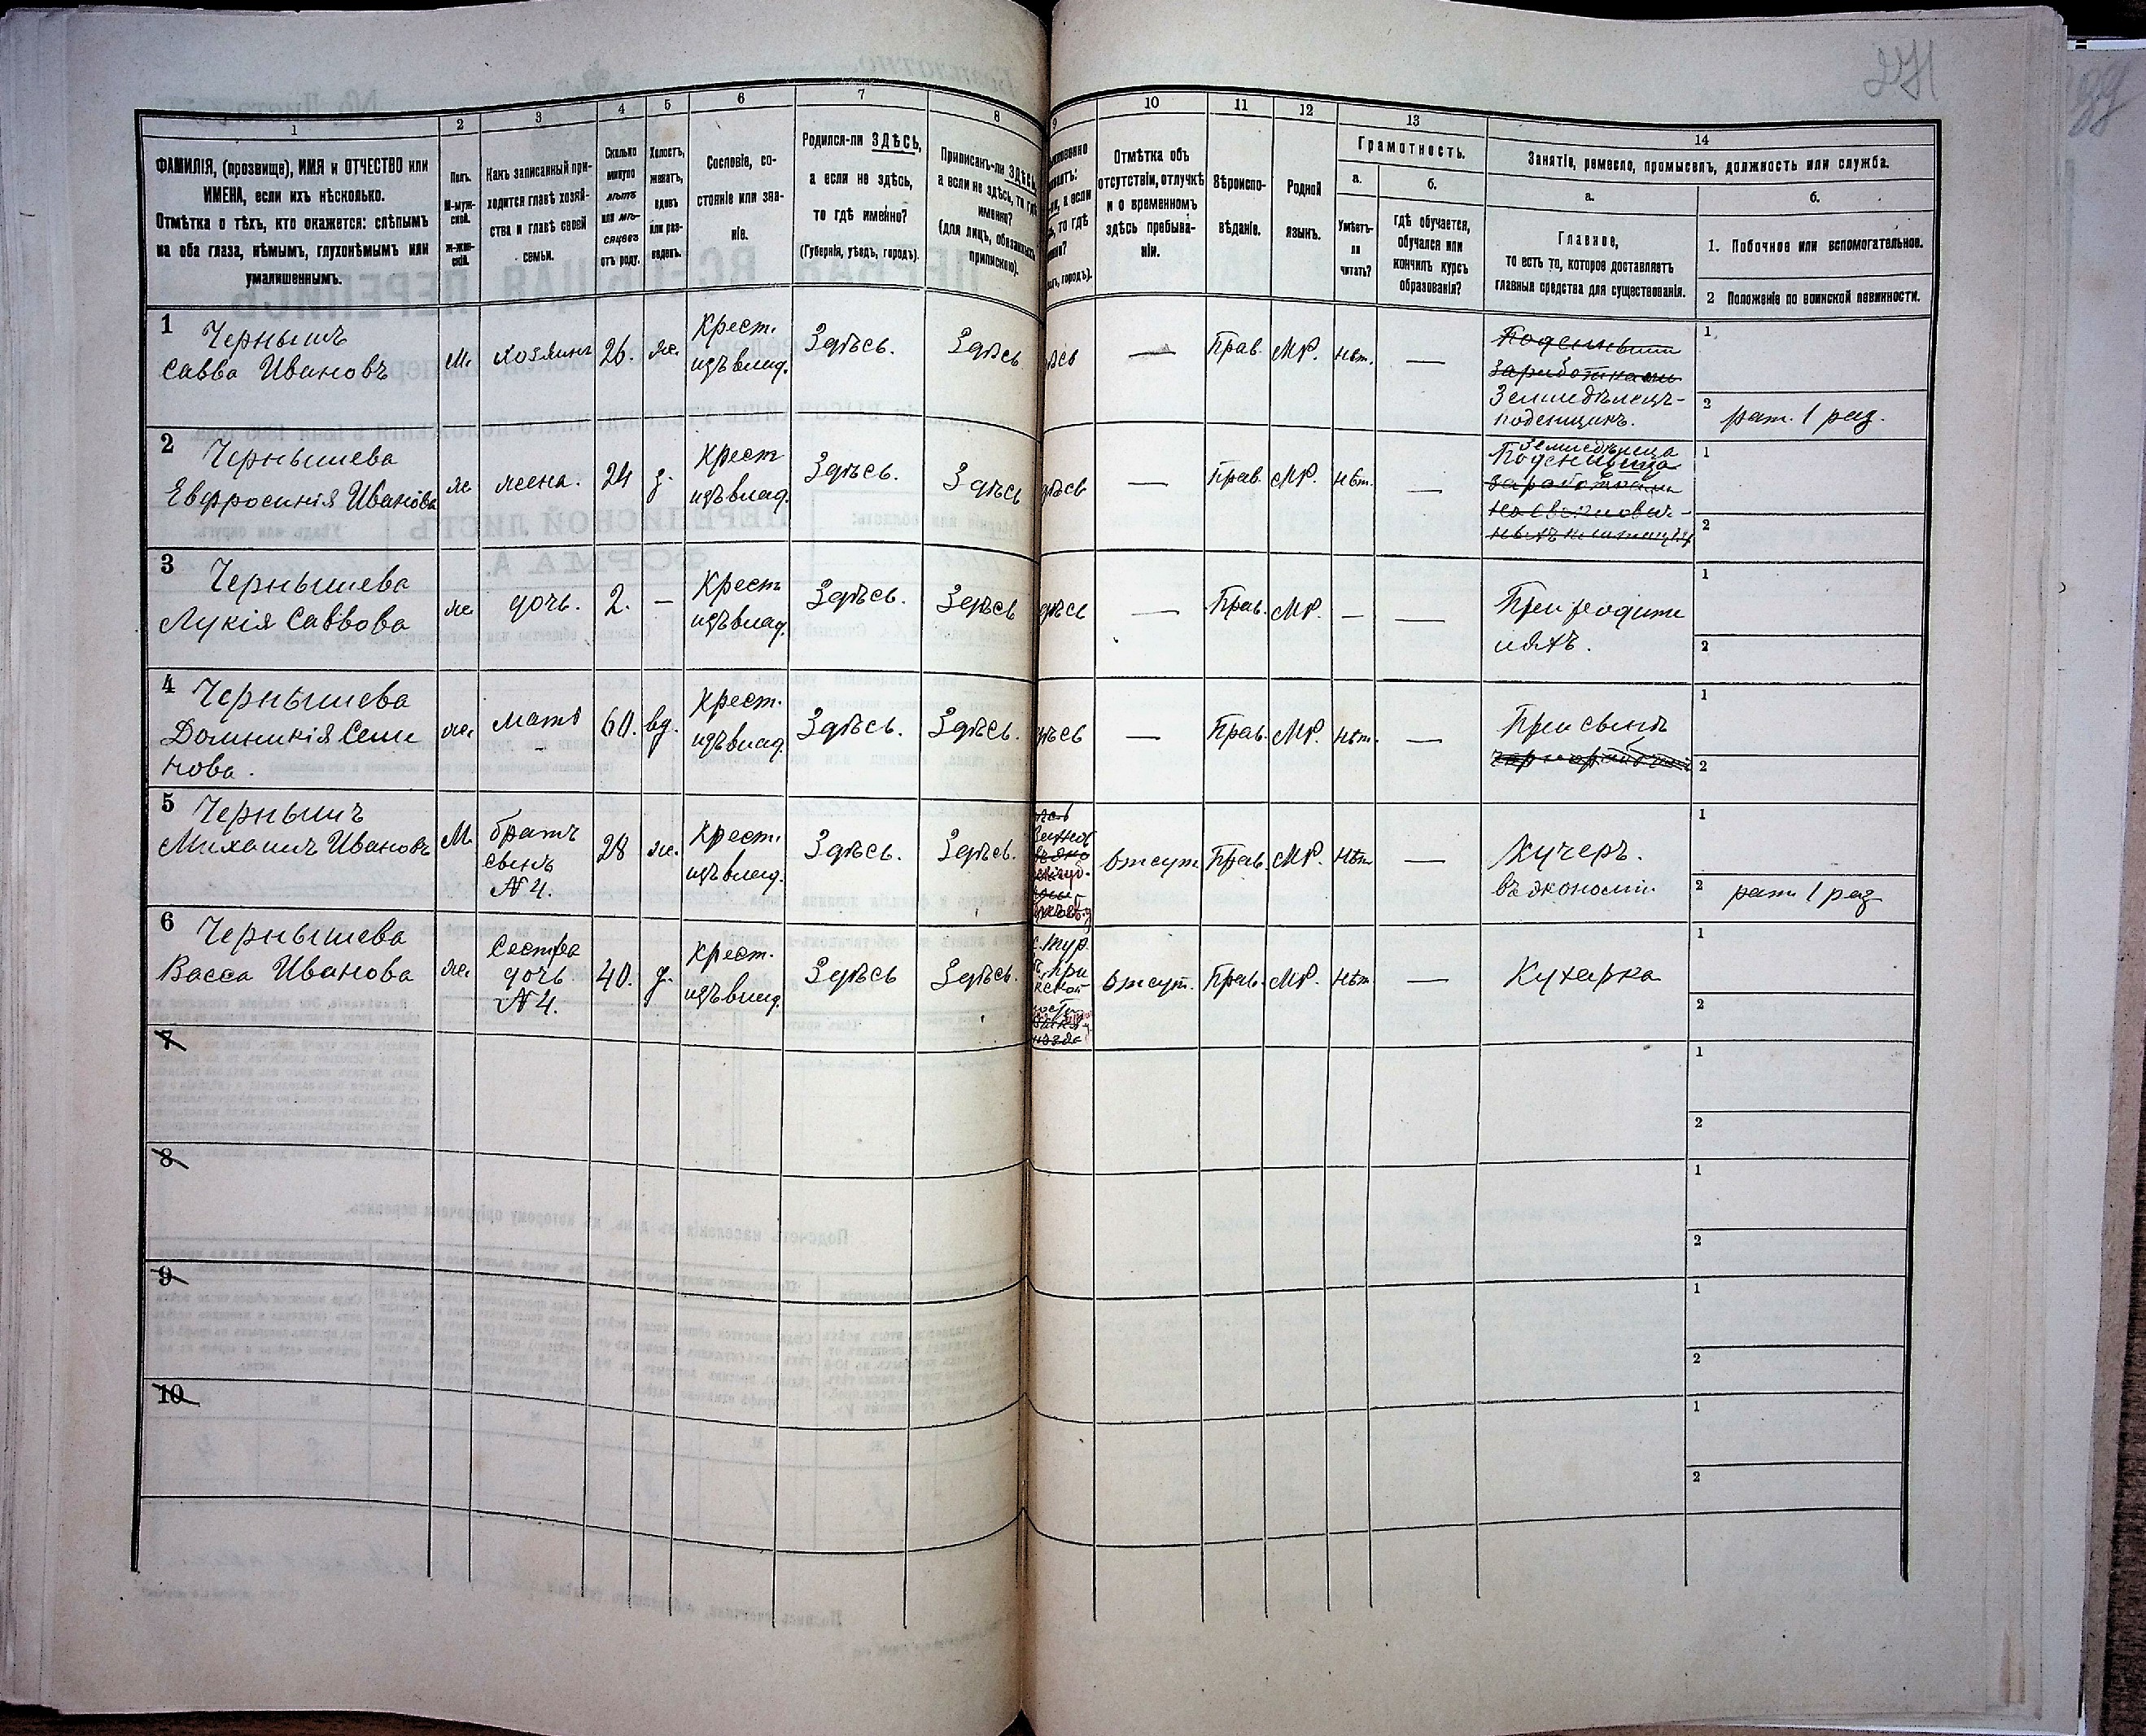 271
1
2
3
4
5
6
7
8
9
10
11
12
13
14
ФАМИЛІЯ, (прозвище), ИМЯ и ОТЧЕСТВО или
ИМЕНА, если ихъ нѣсколько.
Отмѣтка о тѣхъ, кто окажется: слѣпымъ
на оба глаза, нѣмымъ, глухонѣмымъ или
умалишеннымъ.
Полъ.
М-муж-
ской.
Ж-жен-
скій.
Какъ записанный при-
ходится главѣ хозяй-
ства и главѣ своей
семьи.
Сколько
минуло
лѣтъ
или мѣ-
сяцевъ
отъ роду.
Холостъ,
женатъ,
вдовъ
или раз-
веденъ.
Сословіе, со-
стояніе или зва-
ніе.
Родился-ли ЗДѢСЬ,
а если не здѣсь,
то гдѣ именно?
(Губернія, уѣздъ, городъ).
Приписанъ-ли ЗДѢСЬ,
а если не здѣсь, то гдѣ
именно?
(для лицъ, обязанныхъ
припискою).
а если
то гдѣ
городъ).
Отмѣтка объ
отсутствіи, отлучкѣ
и о временномъ
здѣсь пребыва-
ніи.
Вѣроиспо-
вѣданіе.
Родной
языкъ.
Грамотность.
а.
Умѣетъ-
ли
читать?
б.
гдѣ обучается,
обучался или
кончилъ курсъ
образованія?
Занятіе, ремесло, промыселъ, должность или служба.
а.
Главное,
то есть то, которое доставляетъ
главныя средства для существованія.
б.
1. Побочное или вспомогательное.
2 Положеніе по воинской повинности.
1 Чернышъ
Савва Ивановъ
М.
хозяинъ
26.
ж.
Крест.
изъ влад.
Здѣсь.
Здѣсь
—
Прав.
МР.
нѣт.
—
Поденными
заработками
Земледѣлецъ-
поденщикъ.
1
2 рат. 1 раз.
2 Чернышева
Евфросинія Иванова
ж
жена.
24
з.
Крест
изъ влад.
Здѣсь.
Здѣсь
—
Прав.
МР.
нѣт.
—
заработками
1
2
3 Чернышева
Лукія Саввова
ж
дочь.
2.
—
Крест
изъ влад.
Здѣсь.
Здѣсь
—
Прав.
МР.
—
—
При родите
ляхъ.
1
2
4 Чернышева
Домникія Семе
нова.
ж.
мать
60.
вд.
Крест.
изъ влад.
Здѣсь.
Здѣсь.
—
Прав.
МР.
нѣт.
—
При сынѣ
1
2
5 Чернышъ
Михаилъ Ивановъ
М.
братъ
сынъ
№ 4.
28
ж.
Крест.
изъ влад.
Здѣсь.
Здѣсь.
отсут
Прав.
МР.
нѣт
—
Кучеръ.
въ экономіи.
1
2 рат 1 раз
6 Чернышева
Васса Иванова
ж.
Сестра
дочь
№ 4.
40.
Крест.
изъ влад.
Здѣсь
Здѣсь.
отсут.
Прав.
МР.
нѣт
—
Кухарка
1
2
7
1
2
8
1
2
9
1
2
10
1
2